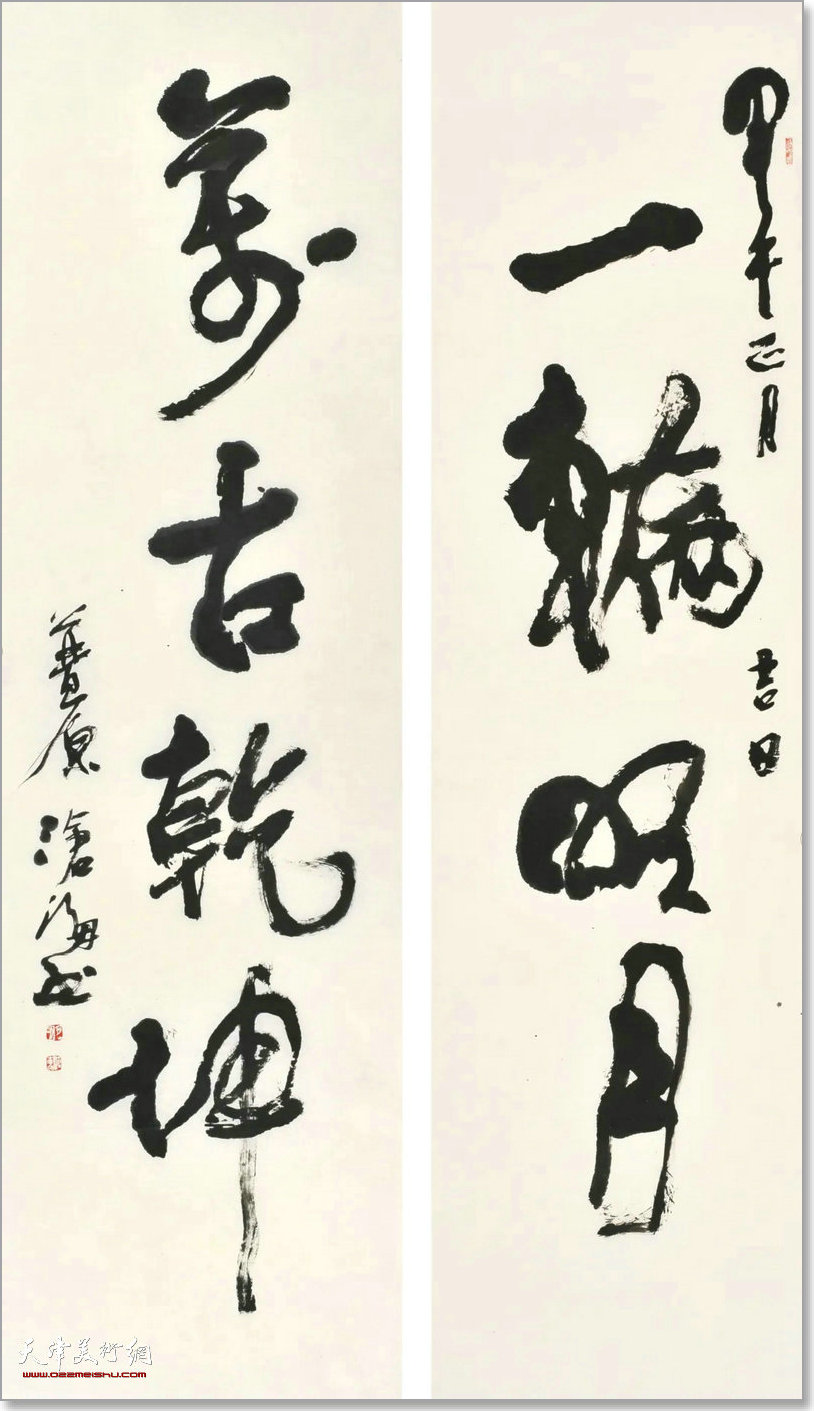 甲午正月
吉日
一輪明月
萬古乾坤
滄海
天津美术網
www.022meishu.com